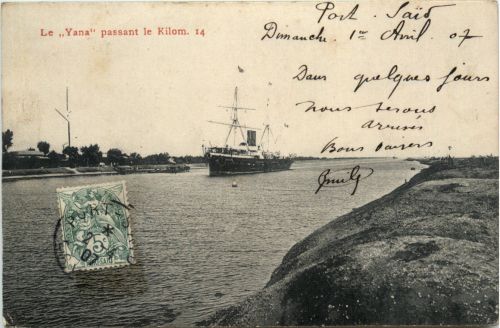 Le „Yana" passant le Kilom. 14
Port. Saïd
Dimanche. 1er Avril. 07
Dans quelques jours
nous serons
arrivés
Bons baisers
Emily
5